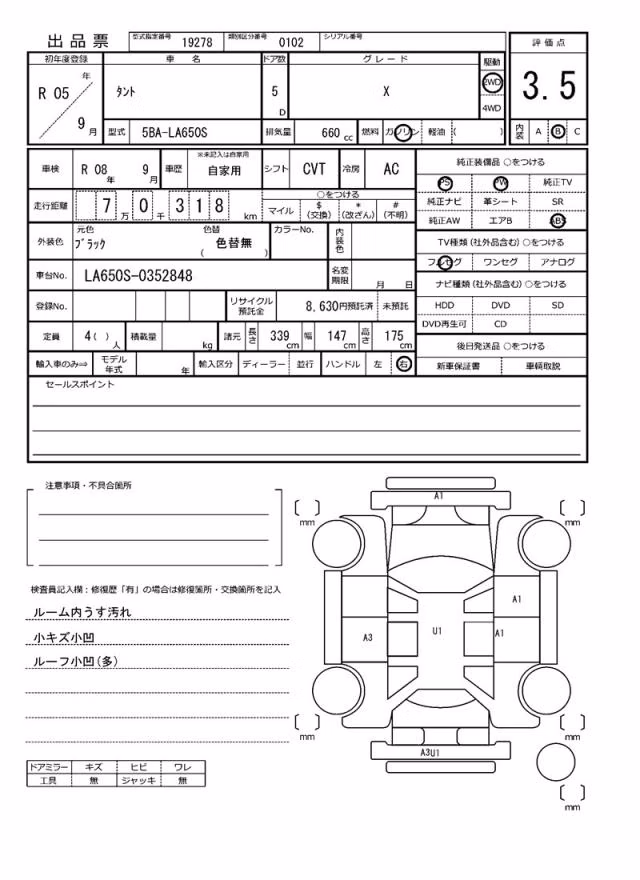 出品票
型式指定番号 19278 類別区分番号 0102 シリアル番号
評価点
3.5
内装 A B C
初年度登録 車名 ドア数 グレード 駆動
R 05 年 9 月
タント 5 D X 2WD 4WD
型式 5BA-LA650S 排気量 660 cc 燃料 ガソリン 軽油 ( )
車検 R 08 年 9 月 車歴 ※未記入は自家用 自家用 シフト CVT 冷房 AC
走行距離 7 万 0 千 3 1 8 km
○をつける
マイル $ (交換) * (改ざん) # (不明)
外装色 元色 ブラック 色替 色替無 ( ) カラーNo. 内装色
車台No. LA650S-0352848 名変期限 月 日
登録No. リサイクル預託金 8,630円預託済 未預託
定員 4( ) 人 積載量 kg 諸元 長さ 339 cm 幅 147 cm 高さ 175 cm
輸入車のみ⇒ モデル年式 年 輸入区分 ディーラー 並行 ハンドル 左 右
純正装備品 ○をつける
PS PW 純正TV
純正ナビ 革シート SR
純正AW エアB ABS
TV種類(社外品含む)○をつける
フルセグ ワンセグ アナログ
ナビ種類(社外品含む)○をつける
HDD DVD SD
DVD再生可 CD
後日発送品 ○をつける
新車保証書 車輌取説
セールスポイント
注意事項・不具合箇所
検査員記入欄：修復歴「有」の場合は修復箇所・交換箇所を記入
ルーム内うす汚れ
小キズ小凹
ルーフ小凹(多)
ドアミラー キズ ヒビ ワレ
工具 無 ジャッキ 無
A1
mm
mm
A1
A3
U1
A1
mm
mm
A3U1
mm